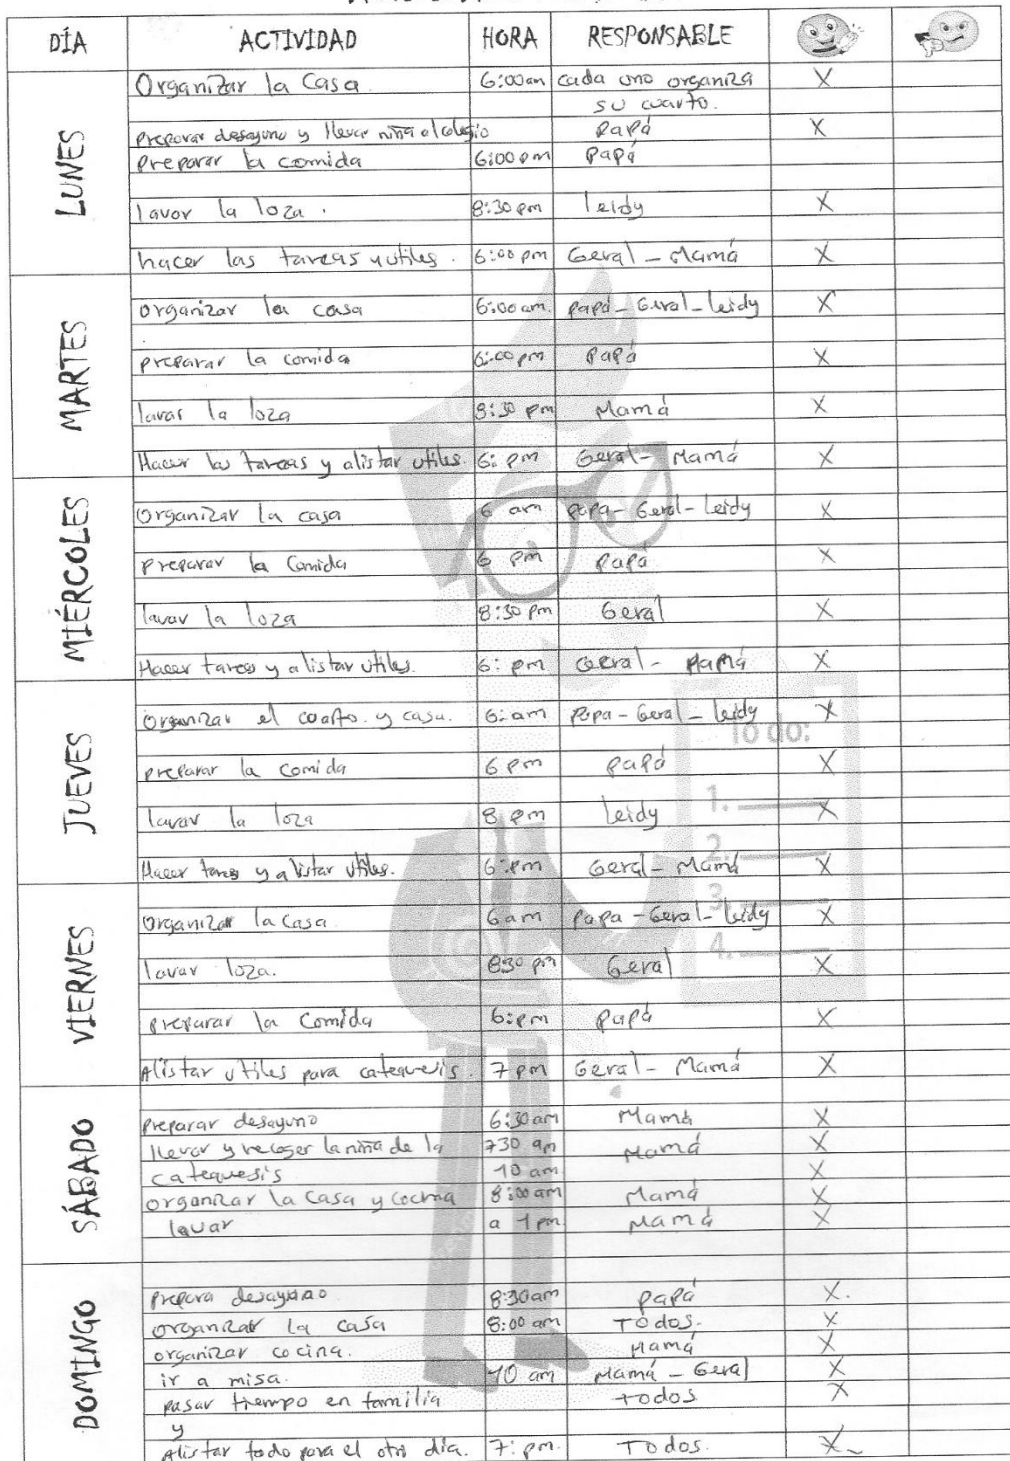 DÍA ACTIVIDAD HORA RESPONSABLE
LUNES
Organizar la Casa 6:00am cada uno organiza
su cuarto.
preparar desayuno y llevar niña al colegio Papá X
preparar la comida 6:00 pm Papá
lavar la loza. 8:30 pm leidy X
hacer las tareas y utiles. 6:00 pm Geral - Mamá X
MARTES
organizar la casa 6:00 am. papá - Geral - leidy X
preparar la comida 6:00 pm Papá X
lavar la loza 8:30 pm Mamá X
Hacer las tareas y alistar utiles. 6: pm Geral - Mamá X
MIÉRCOLES
Organizar la casa 6 am papa - Geral - Leidy X
preparar la Comida 6 pm papá X
lavar la loza 8:30 pm Geral X
Hacer tareas y alistar utiles. 6: pm Geral - Mamá X
JUEVES
organizar el cuarto. y casa. 6: am Papa - Geral - Leidy X
To do:
preparar la Comida 6 pm papá X
1.
lavar la loza 8 pm Leidy X
2.
Hacer tareas y alistar utiles. 6: pm Geral - Mamá X
3.
VIERNES
Organizar la casa 6 am papa - Geral - leidy X
4.
lavar loza. 830 pm Geral X
preparar la Comida 6: pm papá X
Alistar utiles para catequesis. 7 pm Geral - Mamá X
SÁBADO
preparar desayuno 6:30 am Mamá X
llevar y recoger la niña de la 730 am Mamá X
catequesis 10 am X
organizar la Casa y cocina 8:00 am Mamá X
lavar a 1 pm. Mamá X
DOMINGO
prepara desayuno 8:30am papá X.
organizar la casa 8:00 am Todos. X
organizar cocina. Mamá X
ir a misa. 10 am Mamá - Geral X
pasar tiempo en familia todos X
y
Alistar todo para el otro dia. 7: pm. Todos. X